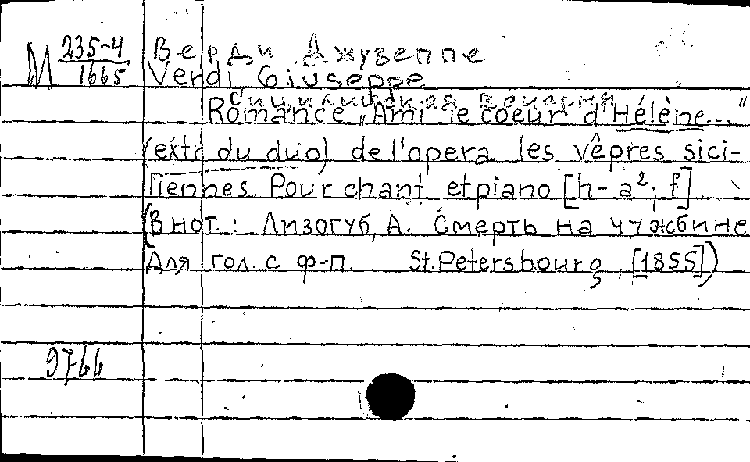 М 235-4
1665
Верди Джузеппе
Verdi Giuseppe
Сицилийская вечерня
Romance „Ami le coeur d'Hélène..."
(extr. du duo) de l'opera les vêpres sici-
liennes. Pour chant et piano [h-a²; f]
(В нот.: Лизогуб, А. Смерть на чужбине
для гол. с ф-п. St. Petersbourg, [1855])
9766